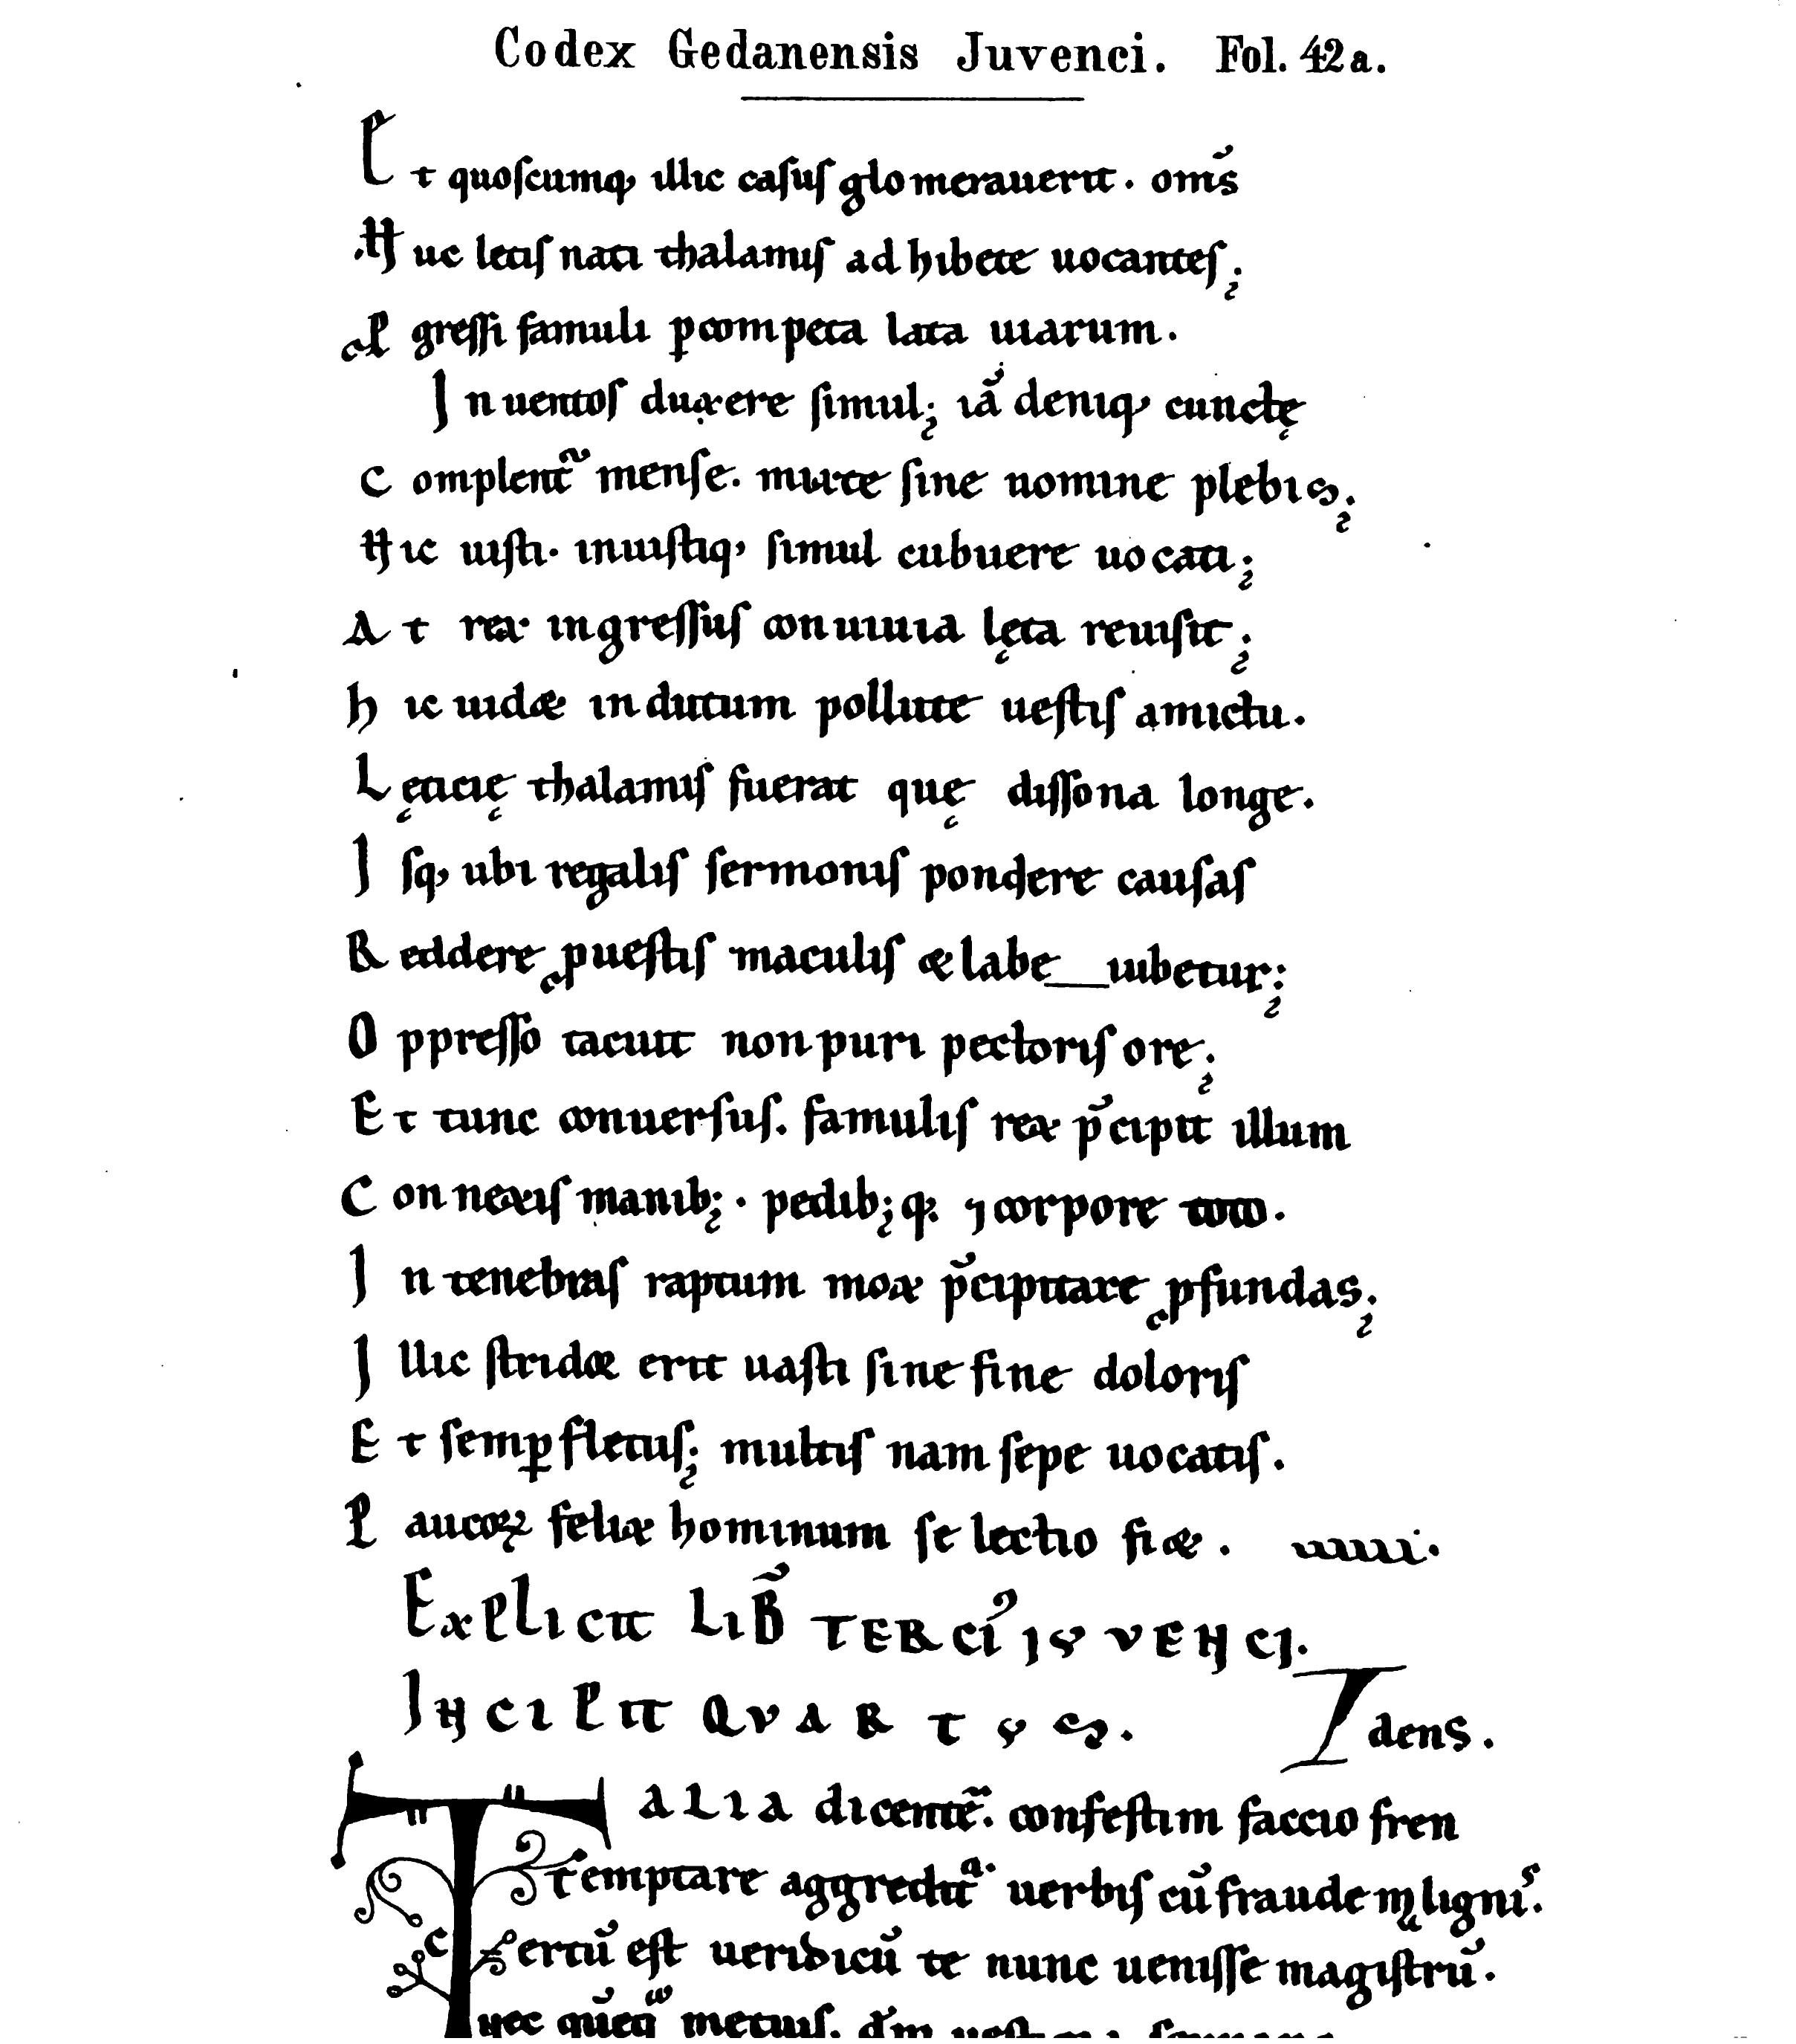 Codex Gedanensis Juvenci. Fol. 42a.
Et quoſcumq; illic caſuſ glomerauerit. om̄s
Huc letiſ nati thalamiſ adhibete uocanteſ;
Ꝓgreſſi famuli ꝑcompeta lata uiarum.
Inuentoſ duxere ſimul; iā deniq; cunctę
Complent᷑ menſe. mixte ſine nomine plebis;
Hic iuſti. iniuſtiq; ſimul cubuere uocati;
At rex ingreſſuſ conuiuia lęta reuiſit;
hic uidæ indutum pollute ueſtiſ amictu.
Lęticię thalamiſ fuerat quę diſſona longe.
Iſq; ubi regaliſ ſermoniſ pondere cauſaſ
Reddere ꝓueſtiſ maculiſ & labe iubetur;
Oppreſſo tacuit non puri pectoriſ ore;
Et tunc conuerſuſ. famuliſ rex p̄cipit illum
Connexiſ manib;. pedib;q; ⁊ corpore toto.
In tenebraſ raptum mox p̄cipitare ꝓfundas;
Illic ſtrid& erit uaſti ſine fine doloriſ
Et ſemꝑ fletuſ; multiſ nam ſepe uocatiſ.
Paucoꝝ felix hominum ſelectio fi&.
Explicit LIB̄ TERCIꝰ IUVENCI.
INCIPIT QVARTUS.
Idens.
TALIA dicentē. confeſtim faccio fren
Temptare aggredit᷑ uerbiſ cū fraude maligniſ.
Certū eſt ueridicū te nunc ueniſſe magiſtrū.